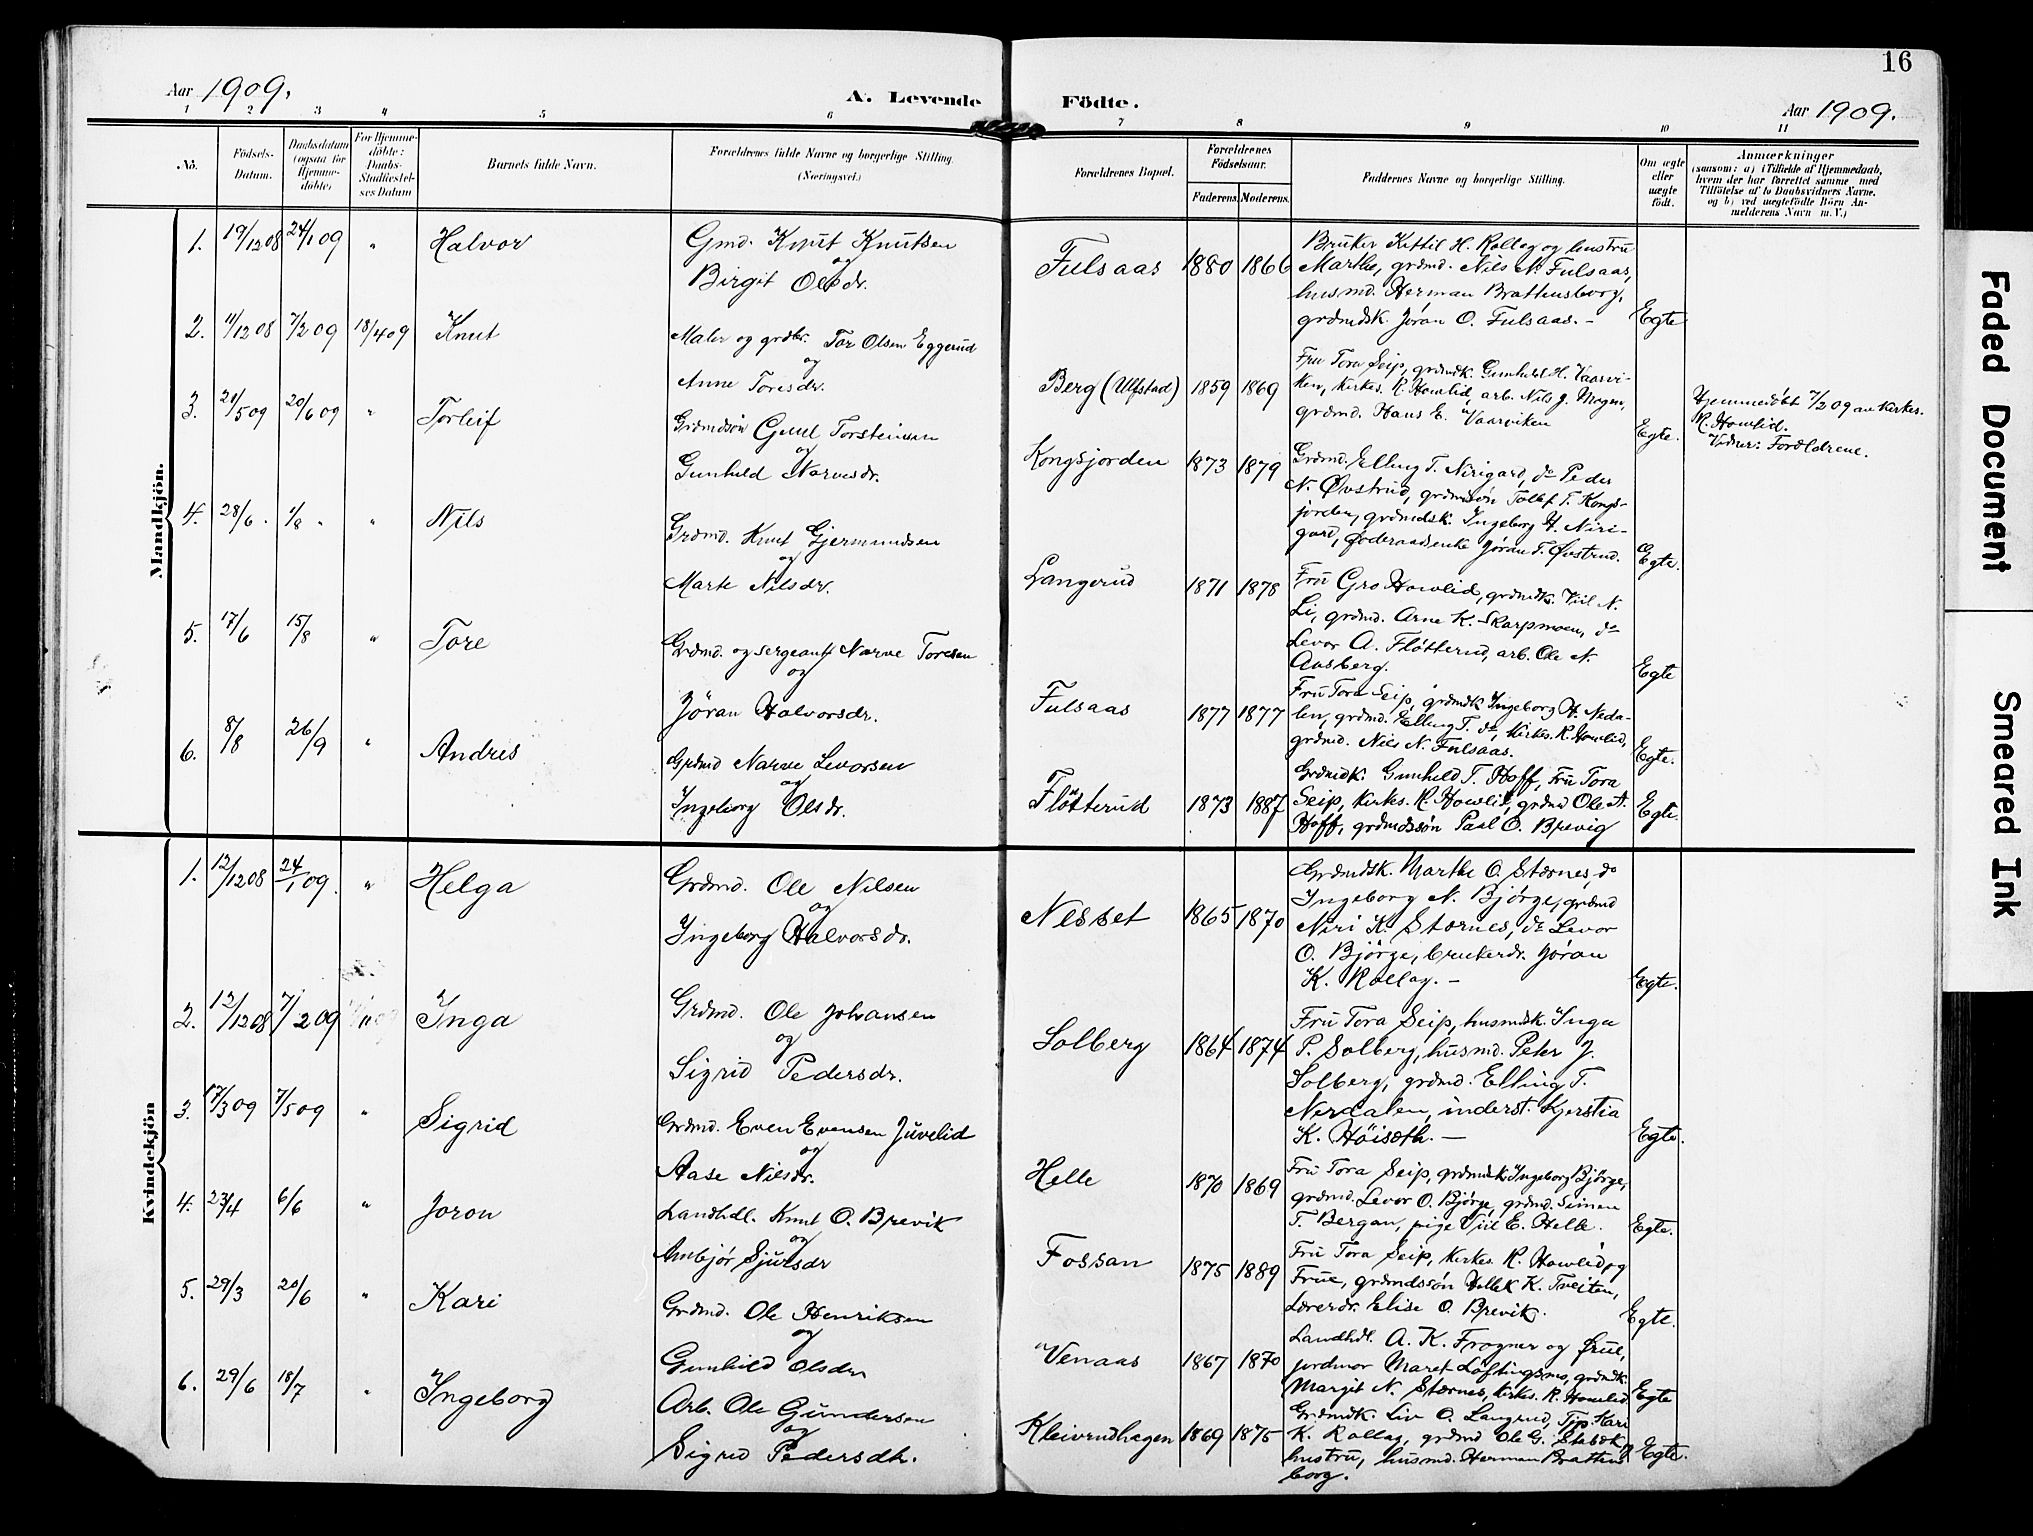 16
Aar 1909.
A. Levende Födte.
Aar 1909.
1 2 3 4 5 6 7 8 9 10 11
No.
Födsels-Datum.
Daabsdatum (ogsaa for Hjemme-döbte)
For Hjemme-döbte: Daabs-Stadfæstel-ses Datum
Barnets fulde Navn.
Forældrenes fulde Navne og borgerlige Stilling. (Næringsvei.)
Forældrenes Bopæl.
Forældrenes Födselsaar.
Faderens. Moderens.
Faddernes Navne og borgerlige Stilling.
Om ægte eller uægte födt.
Anmærkninger
(saasom: a) i Tilfælde af Hjemmedaab,
hvem der har forrettet samme med
Tilföielse af to Daabsvidners Navne.
og b) ved uægtefödte Börn An-
melderens Navn m. V.)
Mandkjön.
1. 19/12 08 24/1 09 " Halvor
Gmd. Knut Knutsen
og
Birgit Olsdr.
Fulsaas 1880 1866
Bruker Kittil H. Rollag og hustru
Marthe, grdmd. Nils N. Fulsaas,
husmd. Herman Brattensborg,
grdmdsk. Jøran O. Fulsaas. -
Egte
2. 11/12 08 7/2 09 18/4 09 Knut
Maler og grdbr. Tor Olsen Eggerud
og
Anne Toresdr.
Berg (Ulfstad) 1859 1869
Fru Tora Seip, grdmdk. Gunhild H. Vaarvi-
ken, kirkes. R. Howlid, arb. Nils J. Mogen,
grdmd. Hans E. Vaarviken
Egte.
Hjemmedøbt 7/2 09 av kirkes.
R. Howlid.
Vidner: Forældrene.
3. 21/5 09 20/6 09 " Torleif
Grdmdsön Gjul Torsteinsen
og
Gunhild Narvesdr.
Kongsjorden 1873 1879
Grdmd. Elling T. Nirigard, do Peder
N. Øvstrud, grdmdsøn Tollef T. Kongs-
jorden, grdmdsk. Ingeborg H. Niri-
gard, føderaadsenke Jøran T. Øvstrud.
Ægte.
4. 28/6. 1/8 " " Nils
Grdmd. Knut Gjermundsen
og
Marte Nilsdr.
Langerud 1871 1878
Fru Gro Howlid, grdmdk. Viil N.
Li, grdmd. Arne K. Skarpmoen, do
Levor A. Fløtterud, arb. Ole N.
Aasberg.
Egte
5. 17/6 15/8 " Tore
Grdmd. og sergeant Narve Toresen
og
Jøran Halvorsdr.
Fulsaas 1877 1877
Fru Tora Seip, grdmdk Ingeborg H. Neda-
len, grdmd. Elling T. do, kirkes. R. Howlid,
grdmd. Niels N. Fulsaas.
Egte.
6. 8/8 26/9 " Andres
Grdmd Narve Levorsen
og
Ingeborg Olsdr.
Fløtterud 1873 1887
Grdmdk. Gunhild T. Hoff, Fru Tora
Seip, kirkes. R. Howlid, grdmd Ole A.
Hoff, grdmdssøn Paal O. Brevig
Egte.
Kvindekjön
1. 12/12 08 24/1 09. " Helga
Grdmd. Ole Nilsen
og
Ingeborg Halvorsdr.
Nesset 1865 1870
Grdmdsk. Marthe O. Stærnes, do
Ingeborg N. Bjørge, grdmd
Niri K. Stærnes, do Levor
O. Bjørge, brukerdr. Jøran
K. Rollag. -
Egte.
2. 12/12 08 7/2 09 " Inga
Grdmd. Ole Johansen
og
Sigrid Pedersdr.
Solberg 1864 1874
Fru Tora Seip, husmdsk. Inga
P. Solberg, husmd. Peter J.
Solberg, grdmd. Elling T.
Nerdalen, inderst. Kjerstia
K. Höisæth. -
Egte.
3. 17/3 09 7/5 09 " Sigrid
Grdmd. Even Evensen Juvelid
og
Aase Nilsdr.
Helle 1870 1869
Fru Tora Seip, grdmdsk Ingeborg Bjørge,
grdmd. Levor O. Bjørge, grdmd. Simen
T. Bergan, pige Viil E. Helle.
Egte.
4. 23/4 6/6 " Joron
Landhdl. Knut O. Brevik
og
Ambjør Sjulsdr
Fossan 1875 1889
Fru Tora Seip, kirkes. R. Howlid og
Frue, grdmdssøn Hellek K. Tveiten,
Lærerdr. Elise O. Brevik.
Egte.
5. 29/3 20/6 " Kari
Grdmd. Ole Henriksen
og
Gunhild Olsdr
Venaas 1867 1870
Landhdl. A. K. Frogner og Frue,
jordmor Maret Løftingsmo, grdmdk.
Margit N. Stærnes, kirkes. R. Howlid
Egte
6. 29/6 18/7 " Ingeborg
Arb. Ole Gundersen
og
Sigrid Pedersdr.
Kleivrudhagen 1869 1875
Grdmdk. Liv O. Langrud, Tip Kari
K. Rollag, grdmd Ole G. Stabæk
hustru, husmd. Herman Brattens
borg.
Egte.
Faded Document
Smeared Ink